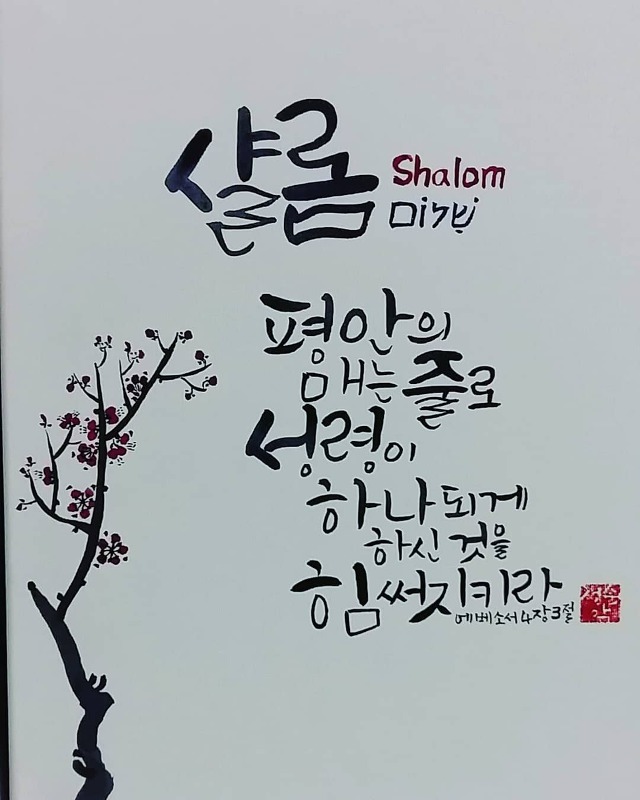 샬롬
Shalom
שָׁלוֹם
평안의
매는 줄로
성령이
하나 되게
하신 것을
힘써 지키라
에베소서 4장 3절